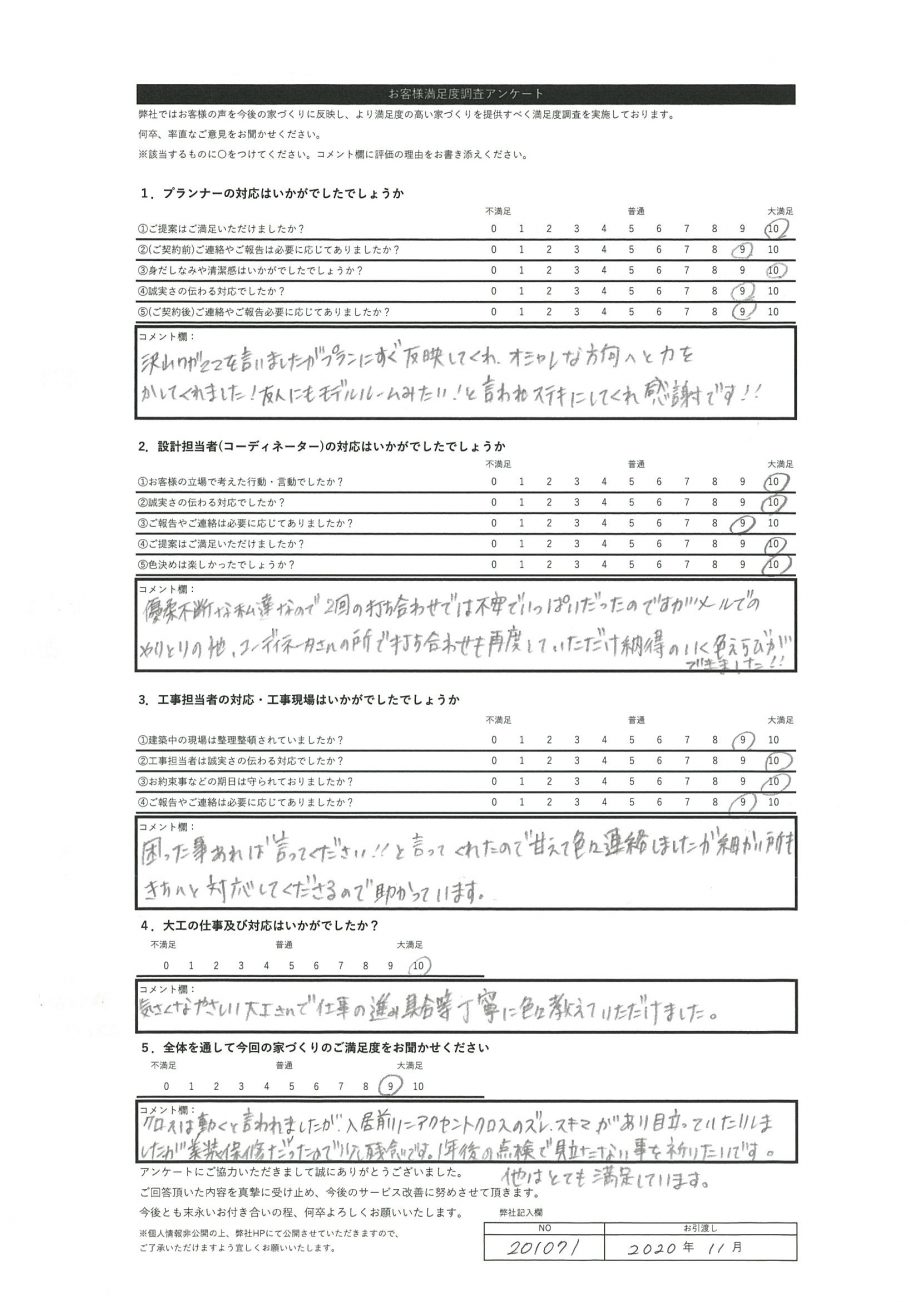 お客様満足度調査アンケート
弊社ではお客様の声を今後の家づくりに反映し、より満足度の高い家づくりを提供すべく満足度調査を実施しております。
何卒、率直なご意見をお聞かせください。
※該当するものに〇をつけてください。コメント欄に評価の理由をお書き添えください。
1．プランナーの対応はいかがでしたでしょうか
不満足 普通 大満足
①ご提案はご満足いただけましたか？ 0 1 2 3 4 5 6 7 8 9 10
②(ご契約前)ご連絡やご報告は必要に応じてありましたか？ 0 1 2 3 4 5 6 7 8 9 10
③身だしなみや清潔感はいかがでしたでしょうか？ 0 1 2 3 4 5 6 7 8 9 10
④誠実さの伝わる対応でしたか？ 0 1 2 3 4 5 6 7 8 9 10
⑤(ご契約後)ご連絡やご報告必要に応じてありましたか？ 0 1 2 3 4 5 6 7 8 9 10
コメント欄：
沢山ワガママを言いましたがプランにすぐ反映してくれ、オシャレな方向へと力を
かしてくれました！友人にもモデルルームみたい！と言われステキにしてくれ感謝です！！
2．設計担当者(コーディネーター)の対応はいかがでしたでしょうか
不満足 普通 大満足
①お客様の立場で考えた行動・言動でしたか？ 0 1 2 3 4 5 6 7 8 9 10
②誠実さの伝わる対応でしたか？ 0 1 2 3 4 5 6 7 8 9 10
③ご報告やご連絡は必要に応じてありましたか？ 0 1 2 3 4 5 6 7 8 9 10
④ご提案はご満足いただけましたか？ 0 1 2 3 4 5 6 7 8 9 10
⑤色決めは楽しかったでしょうか？ 0 1 2 3 4 5 6 7 8 9 10
コメント欄：
優柔不断な私達なので2回の打ち合わせでは不安でいっぱいだったのですがメールでの
やりとりの他、コーディネーターさんの所で打ち合わせも再度していただけ納得のいく色えらびが
できました！！
3．工事担当者の対応・工事現場はいかがでしたでしょうか
不満足 普通 大満足
①建築中の現場は整理整頓されていましたか？ 0 1 2 3 4 5 6 7 8 9 10
②工事担当者は誠実さの伝わる対応でしたか？ 0 1 2 3 4 5 6 7 8 9 10
③お約束事などの期日は守られておりましたか？ 0 1 2 3 4 5 6 7 8 9 10
④ご報告やご連絡は必要に応じてありましたか？ 0 1 2 3 4 5 6 7 8 9 10
コメント欄：
困った事あれば言ってください！！と言ってくれたので甘えて色々連絡しましたが細かい所も
きちんと対応してくださるので助かっています。
4．大工の仕事及び対応はいかがでしたか？
不満足 普通 大満足
0 1 2 3 4 5 6 7 8 9 10
コメント欄：
気さくなやさしい大工さんで仕事の進み具合等丁寧に色々教えていただけました。
5．全体を通して今回の家づくりのご満足度をお聞かせください
不満足 普通 大満足
0 1 2 3 4 5 6 7 8 9 10
コメント欄：
クロスは動くと言われましたが、入居前にアクセントクロスのズレ、スキマがあり目立っていたりしま
したが 保修だったので少し残念です。1年後の点検で見立たない事を祈りたいです。
他はとても満足しています。
アンケートにご協力いただきまして誠にありがとうございました。
ご回答頂いた内容を真摯に受け止め、今後のサービス改善に努めさせて頂きます。
今後とも末永いお付き合いの程、何卒よろしくお願いいたします。
※個人情報非公開の上、弊社HPにて公開させていただきますので、
ご了承いただけますよう宜しくお願いいたします。
弊社記入欄
NO お引渡し
201071 2020年 11月